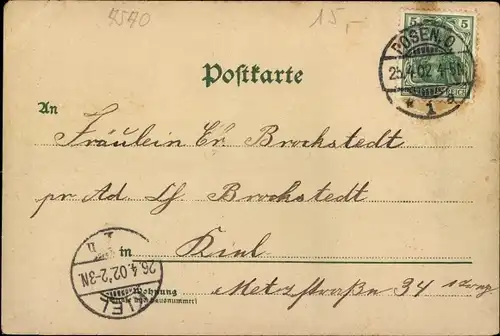 4540 15,-
5 5
POSEN. O.
25.4.02 4-5N.
REICH
* 1 a
Postkarte
An
Fräulein Er Brockstedt
pr Ad Brockstedt
in Kiel
KIEL
26.4.02 2-3N.
Wohnung
Metzstraße 34
(Straße und Hausnummer)